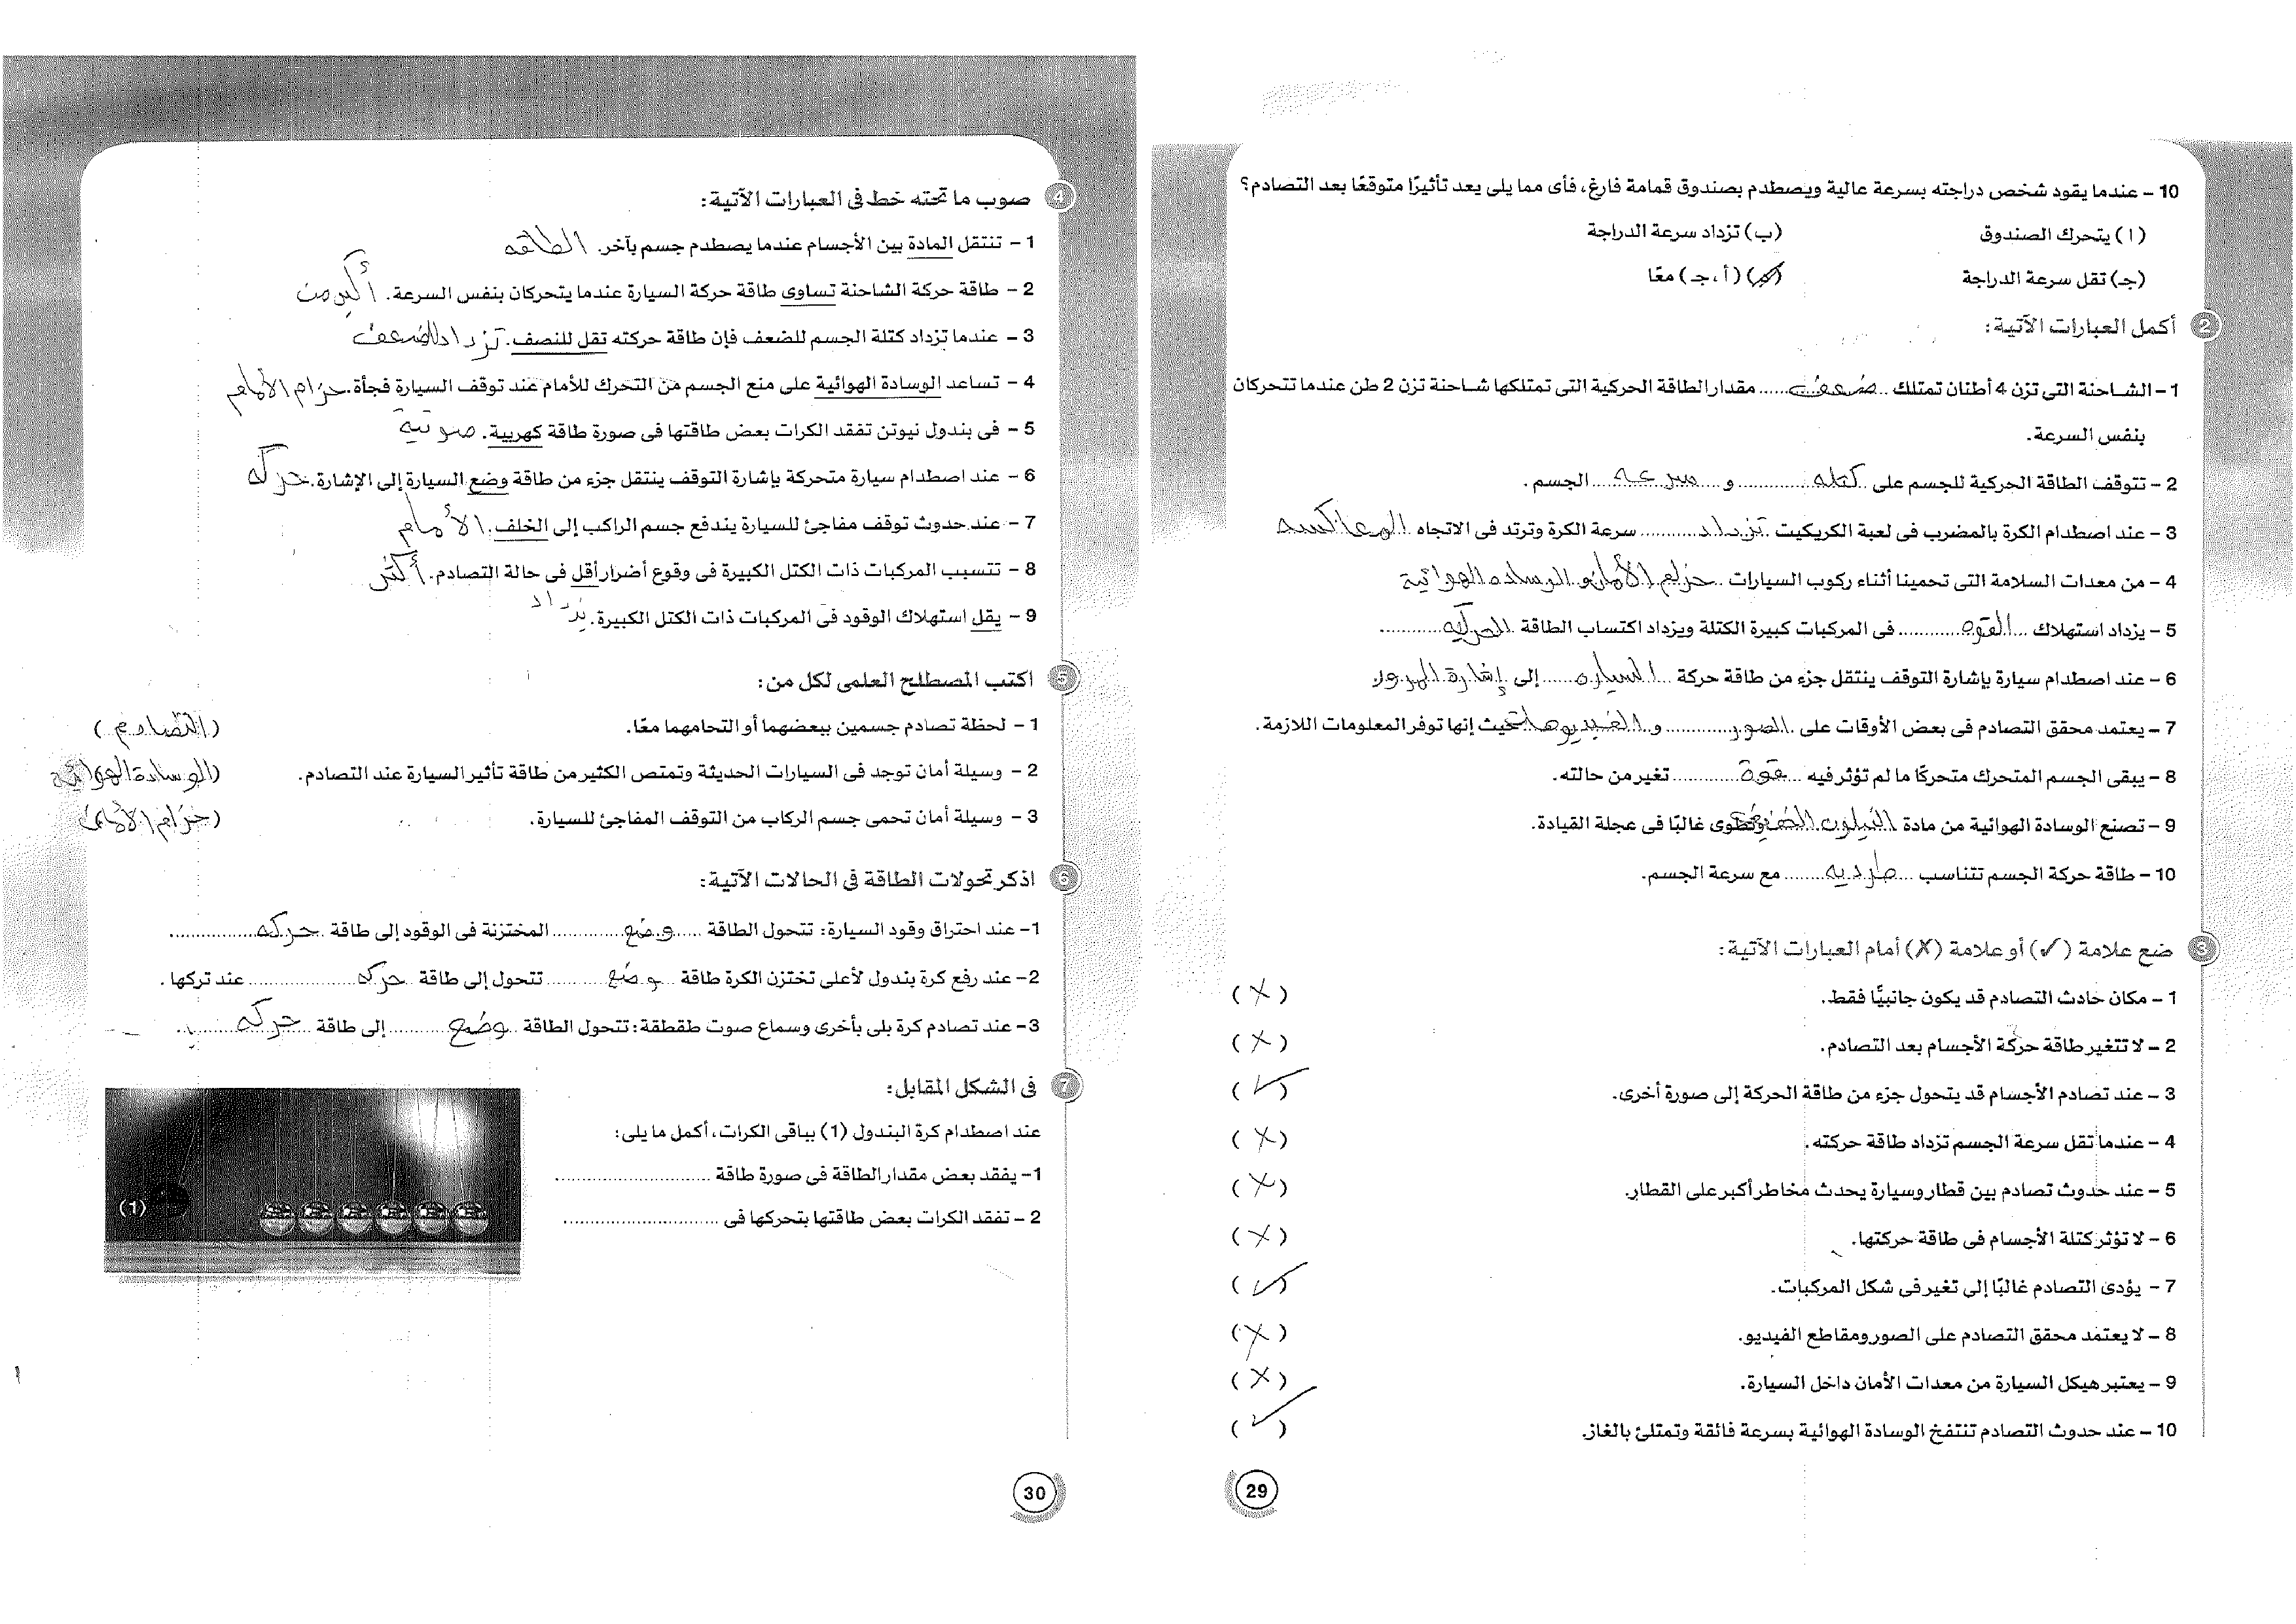 10 - عندما يقود شخص دراجته بسرعة عالية ويصطدم بصندوق قمامة فارغ، فأى مما يلى يعد تأثيرًا متوقعًا بعد التصادم؟
(ا) يتحرك الصندوق (ب) تزداد سرعة الدراجة
(جـ) تقل سرعة الدراجة (د) (أ، جـ) معًا
2 أكمل العبارات الآتية:
1 - الشاحنة التى تزن 4 أطنان تمتلك ضعف مقدار الطاقة الحركية التى تمتلكها شاحنة تزن 2 طن عندما تتحركان
بنفس السرعة.
2 - تتوقف الطاقة الحركية للجسم على كتله و سرعه الجسم.
3 - عند اصطدام الكرة بالمضرب فى لعبة الكريكيت تزداد سرعة الكرة وترتد فى الاتجاه المعاكسه
4 - من معدات السلامة التى تحمينا أثناء ركوب السيارات حزام الأمان و الوساده الهوائية
5 - يزداد استهلاك القوه فى المركبات كبيرة الكتلة ويزداد اكتساب الطاقة الحركيه
6 - عند اصطدام سيارة بإشارة التوقف ينتقل جزء من طاقة حركة السياره إلى إشارة المرور
7 - يعتمد محقق التصادم فى بعض الأوقات على الصور و الفيديوهات حيث إنها توفر المعلومات اللازمة.
8 - يبقى الجسم المتحرك متحركًا ما لم تؤثر فيه قوة تغير من حالته.
9 - تصنع الوسادة الهوائية من مادة النيلون وتطوى غالبًا فى عجلة القيادة.
10 - طاقة حركة الجسم تتناسب طرديه مع سرعة الجسم.
3 ضع علامة (✓) أو علامة (✗) أمام العبارات الآتية:
1 - مكان حادث التصادم قد يكون جانبيًّا فقط. (✗)
2 - لا تتغير طاقة حركة الأجسام بعد التصادم. (✗)
3 - عند تصادم الأجسام قد يتحول جزء من طاقة الحركة إلى صورة أخرى. (✓)
4 - عندما تقل سرعة الجسم تزداد طاقة حركته. (✗)
5 - عند حدوث تصادم بين قطار وسيارة يحدث مخاطر أكبر على القطار. (✗)
6 - لا تؤثر كتلة الأجسام فى طاقة حركتها. (✗)
7 - يؤدى التصادم غالبًا إلى تغير فى شكل المركبات. (✓)
8 - لا يعتمد محقق التصادم على الصور ومقاطع الفيديو. (✗)
9 - يعتبر هيكل السيارة من معدات الأمان داخل السيارة. (✗)
10 - عند حدوث التصادم تنتفخ الوسادة الهوائية بسرعة فائقة وتمتلئ بالغاز. (✓)
29
4 صوب ما تحته خط فى العبارات الآتية:
1 - تنتقل المادة بين الأجسام عندما يصطدم جسم بآخر. الطاقه
2 - طاقة حركة الشاحنة تساوى طاقة حركة السيارة عندما يتحركان بنفس السرعة. أكبر من
3 - عندما تزداد كتلة الجسم للضعف فإن طاقة حركته تقل للنصف. تزداد للضعف
4 - تساعد الوسادة الهوائية على منع الجسم من التحرك للأمام عند توقف السيارة فجأة. حزام الأمام
5 - فى بندول نيوتن تفقد الكرات بعض طاقتها فى صورة طاقة كهربية. صوتية
6 - عند اصطدام سيارة متحركة بإشارة التوقف ينتقل جزء من طاقة وضع السيارة إلى الإشارة. حركه
7 - عند حدوث توقف مفاجئ للسيارة يندفع جسم الراكب إلى الخلف. الأمام
8 - تتسبب المركبات ذات الكتل الكبيرة فى وقوع أضرار أقل فى حالة التصادم. أكثر
9 - يقل استهلاك الوقود فى المركبات ذات الكتل الكبيرة. يزداد
5 اكتب المصطلح العلمى لكل من:
1 - لحظة تصادم جسمين ببعضهما أو التحامهما معًا. (التصادم)
2 - وسيلة أمان توجد فى السيارات الحديثة وتمتص الكثير من طاقة تأثير السيارة عند التصادم. (الوسادة الهوائيه
3 - وسيلة أمان تحمى جسم الركاب من التوقف المفاجئ للسيارة. (حزام الأمان)
6 اذكر تحولات الطاقة فى الحالات الآتية:
1- عند احتراق وقود السيارة: تتحول الطاقة وضع المختزنة فى الوقود إلى طاقة حركه
2- عند رفع كرة بندول لأعلى تختزن الكرة طاقة وضع تتحول إلى طاقة حركه عند تركها.
3- عند تصادم كرة بلى بأخرى وسماع صوت طقطقة: تتحول الطاقة وضع إلى طاقة حركه
7 فى الشكل المقابل:
عند اصطدام كرة البندول (1) بباقى الكرات، أكمل ما يلى:
1- يفقد بعض مقدار الطاقة فى صورة طاقة
2 - تفقد الكرات بعض طاقتها بتحركها فى
(1)
30